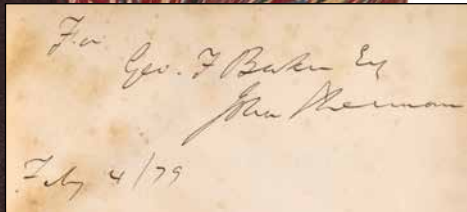 For
Geo. F Baker Esq
John Sherman
Feby 4/79